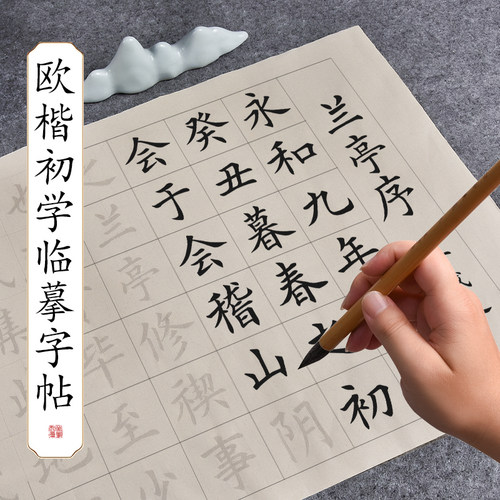 欧楷初学临摹字帖
兰亭序
永和九年
癸丑暮春
初
会于会稽山阴
兰亭修禊事
也
毕至少
集
地